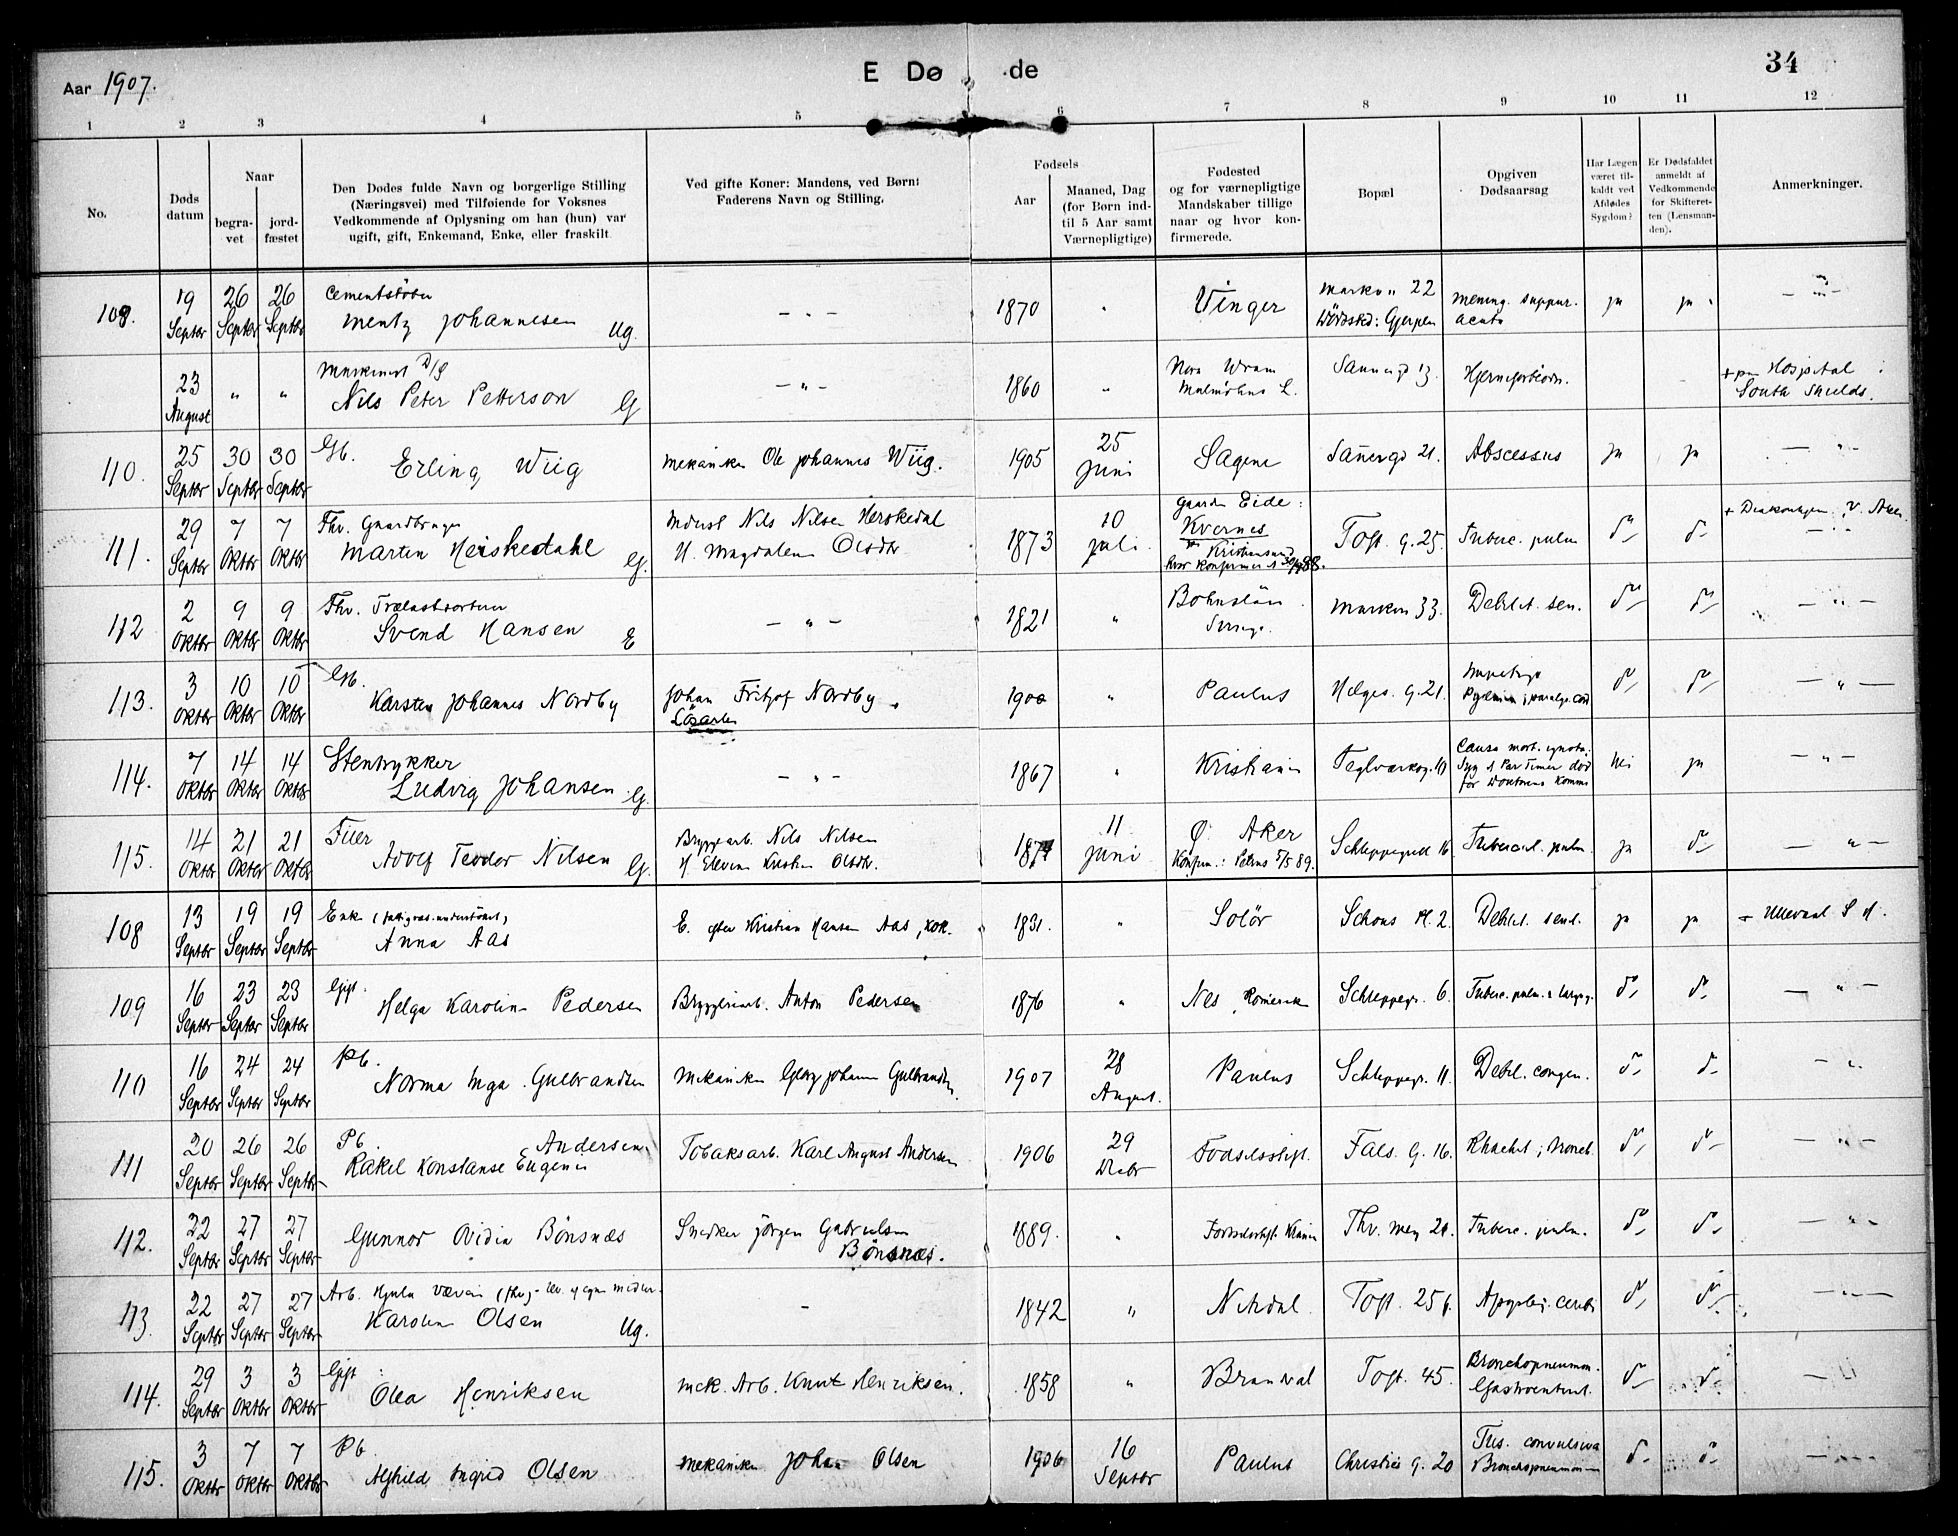 Aar 1907.
E Dø de
34
1 2 3 4 5 6 7 8 9 10 11 12
No.
Døds datum
Naar
begravet
jordfæstet
Den Dødes fulde Navn og borgerlige Stilling
(Næringsvei) med Tilføiende for Voksnes
Vedkommende af Oplysning om han (hun) var
ugift, gift, Enkemand, Enke, eller fraskilt
Ved gifte Koner: Mandens, ved Børn:
Faderens Navn og Stilling.
Fødsels
Aar
Maaned, Dag
(for Børn ind-
til 5 Aar samt
Værnepligtige)
Fødested
og for værnepligtige
Mandskaber tillige
naar og hvor kon-
firmerede.
Bopæl
Opgiven
Dødsaarsag
Har Lægen
været til-
kaldt ved
Afdødes
Sygdom?
Er Dødsfaldet
anmeldt af
Vedkommende
for Skifteret-
ten (Lensman-
den).
Anmerkninger.
109. 19 Septbr 26 Septbr 26 Septbr Cementstøber Mentz Johannesen Ug. — " — 1870 " Vinger 22 Gjerpen mening. suppur. acuta ja ja — " —
23 August " " Maskinist D/S Nils Peter Petterson G — " — 1860 " Nora Wram Malmöhus L. Sannergd 13. + paa Hospital South Shields.
110. 25 Septbr 30 Septbr 30 Septbr Gb. Erling Wiig mekaniker Ole Johannes Wiig. 1905 25 Juni Sagene Sannergd 21. Abscessus ja ja — " —
111. 29 Septbr 7 Oktbr 7 Oktbr Fhv. Gaardbruger Martin Heiskedahl G. Nils Nilsen Herskedal H. Magdalena Olsdtr 1873 10 Juli Gaarden Eide: Kvernes Kristiansund Toft. G. 25. Tuberc. pulm do do — " —
112 2 Oktbr 9 Oktbr 9 Oktbr Fhv. Trælastsorterer Svend Hansen E — " — 1821 " Bohuslän Sverige. Marken 33. Debilit. sen. do do — " —
113. 3 Oktbr 10 Oktbr 10 Oktbr Gb. Karsten Johannes Nordby Johan Fritjof Nordby, Lösarb. 1900 " Paulus Helges. G. 21. Impetigo Pyæmia; paralys. cord do do — " —
114. 7 Oktbr 14 Oktbr 14 Oktbr Stentrykker Ludvig Johansen G. — " — 1867 " Kristiania Teglverksg. 10 Causa mort. ignota: Syg et Par Timer død før Doktorens Komme nei ja — " —
115. 14 Oktbr 21 Oktbr 21 Oktbr Filer Adolf Teodor Nilsen G. Bryggearb. Nils Nilsen H. Kristine Olsdtr. 1874 11 Juni Ø. Aker Konfirm.: Petrus 5/5 89. Schleppegrell 16 Tubercul. pulm. ja do — " —
108 13 Septbr 19 Septbr 19 Septbr Enke (fattigvæs. understöttet) Anna Aas E. efter Kristian Hansen Aas, kok. 1831. " Solör Schous Pl. 2. Debilit. senil. ja ja + Ullevaal S H.
109 16 Septbr 23 Septbr 23 Septbr Gift. Helga Karoline Pedersen Bryggeriarb. Anton Pedersen 1876 " Nes, Romerik Schleppegr. 6. Tuberc. pulm. & laryng. do do — " —
110 16 Septbr 24 Septbr 24 Septbr Pb. Norma Inga Gulbrandsen Mekaniker Georg Johan Gulbrandsen. 1907 28 August. Paulus Schleppegr. 11. Debil. congen. do do — "
111 20 Septbr 26 Septbr 26 Septbr Pb. Rakel Konstanse Eugenie Andersen Tobaksarb. Karl August Andersen 1906 29 Decbr Fødselsstift. Fals. G. 16. Rhachit; bronch. do do — " —
112. 22 Septbr 27 Septbr 27 Septbr Gunnor Ovidia Bönsnæs Snedker Jörgen Gabrielsen Bönsnæs. 1889. " Fødselsstift. Kr.ania Thv. Mey. 20. Tuberc. pulm. do do — " —
113. 22 Septbr 27 Septbr 27 Septbr Karoline Olsen Ug. — 1842 " Nitedal. Toft. 25 Apoplexi. cerebri do do — " —
114. 29 Septbr 3 Oktbr 3 Oktbr Gift: Olea Henriksen Mek. Arb. Knut Henriksen. 1858 " Brandval Toft. 45. Bronchopneumon. Gastroenterit. do do — "
115. 3 Oktbr 7 Oktbr 7 Oktbr Pb. Alfhild Ingrid Olsen mekaniker Johan Olsen 1906 16 Septbr Paulus Christies G. 20 Tus. convulsiva Bronchopneumoni do do — " —